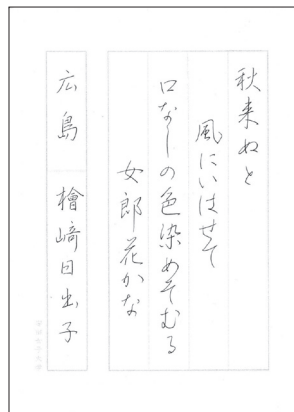 秋来ぬと
風にいはせて
口なしの色染めそむる
女郎花かな
広島 檜﨑日出子